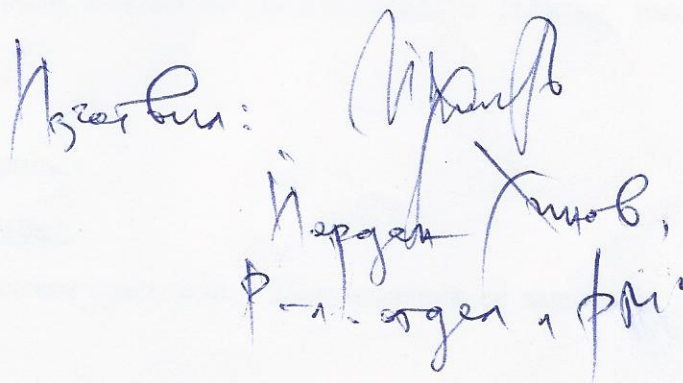 Изготвил:
Йордан Хинов,
Р-л отдел „ФМ“